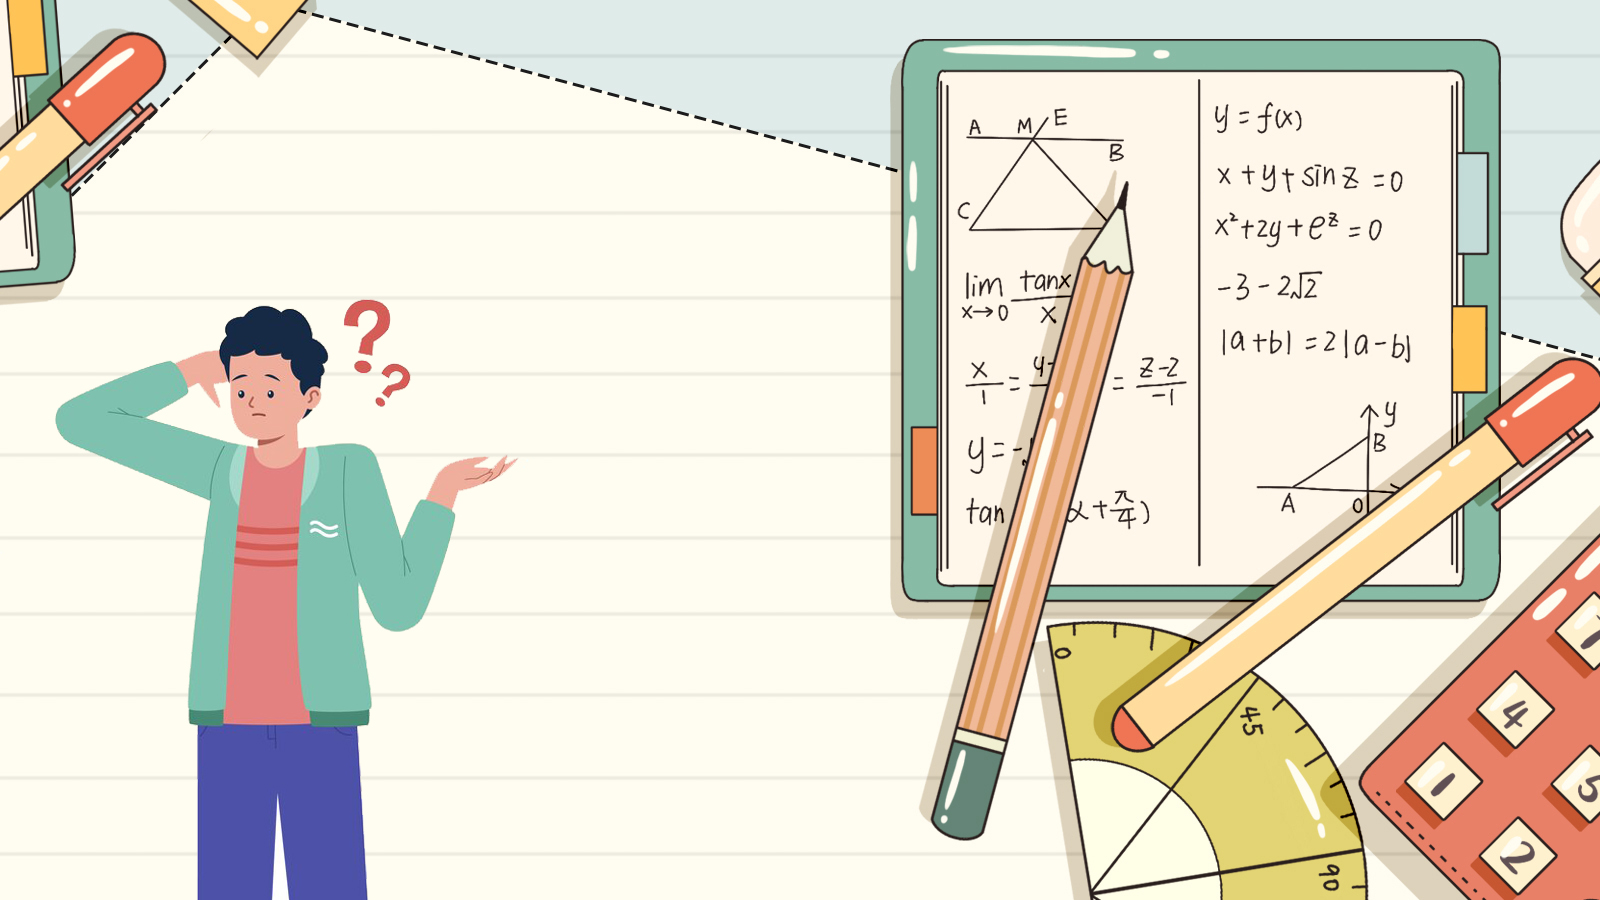 A M E
B
C
lim tanx
x→0 x
x/1 = y- = z-2/-1
y = -
tan α + π/4)
y = f(x)
x + y + sin z = 0
x² + 2y + e^z = 0
-3 - 2√2
|a+b| = 2|a-b|
y
B
A O
0
45
90
4
1
5
2
? ?